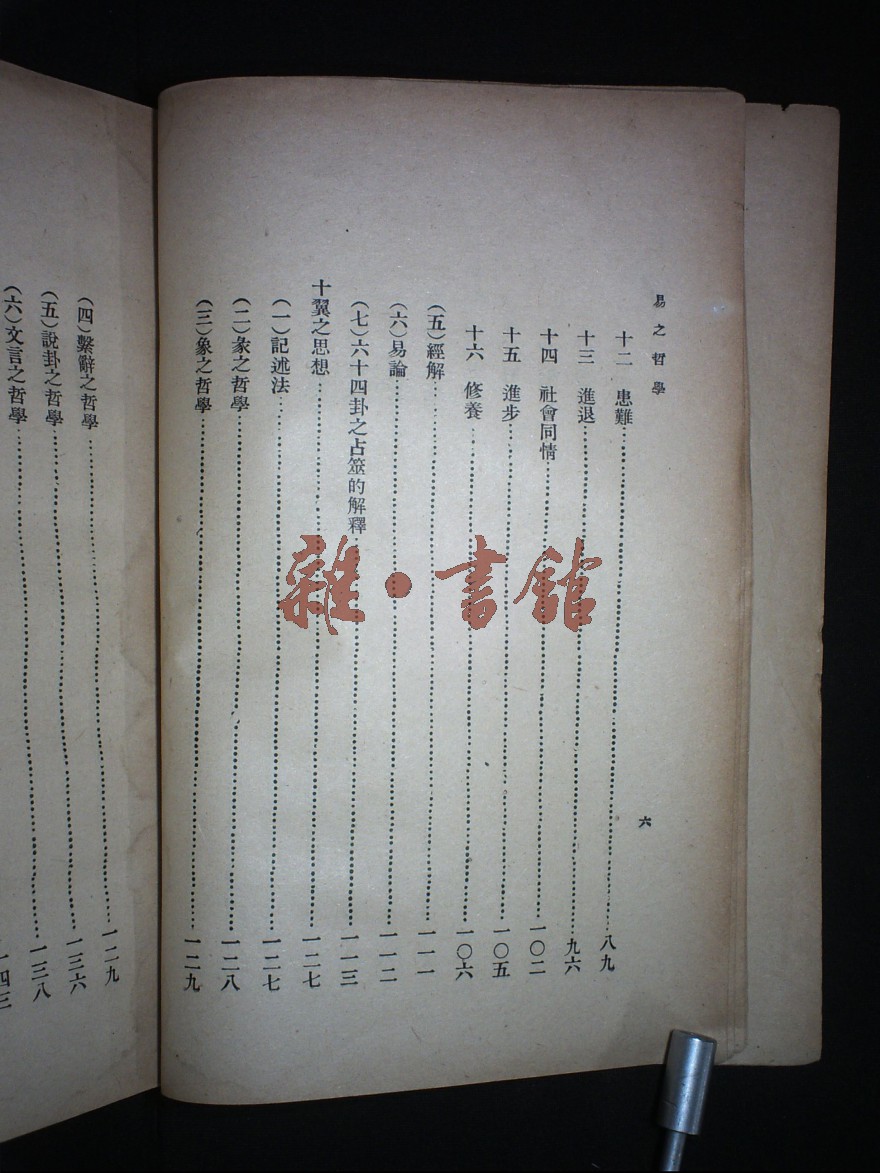 易之哲學 六
十二 患難……八九
十三 進退……九六
十四 社會同情……一〇二
十五 進步……一〇五
十六 修養……一〇六
(五)經解……一一一
(六)易論……一一二
(七)六十四卦之占筮的解釋……一一三
十翼之思想……一二七
(一)記述法……一二七
(二)彖之哲學……一二八
(三)象之哲學……一二九
(四)繫辭之哲學……一二九
(五)說卦之哲學……一三六
(六)文言之哲學……一三八
一四三
雜·書館